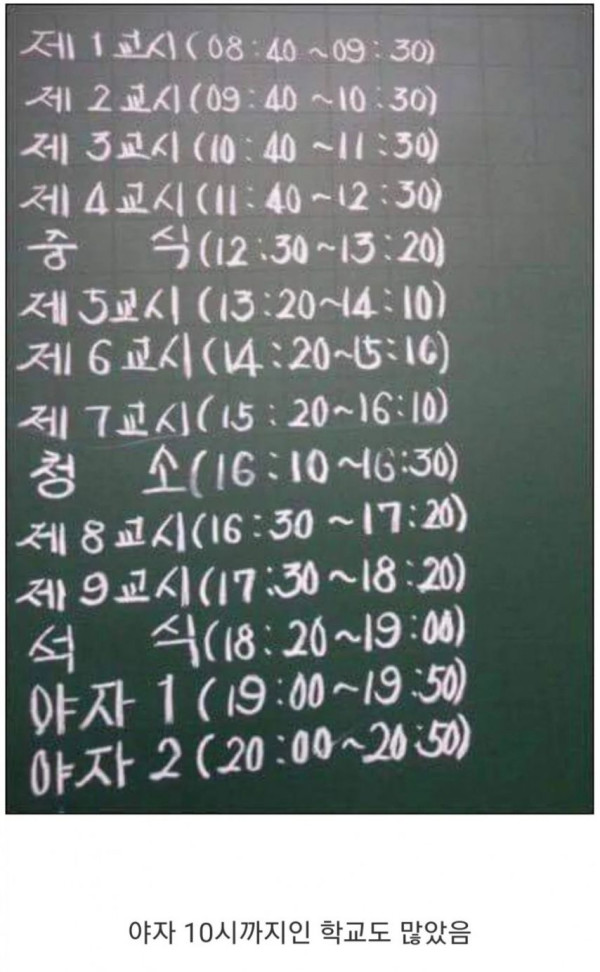 제 1 교시 (08:40 ~09:30)
제 2 교시 (09:40 ~10:30)
제 3 교시 (10:40 ~11:30)
제 4 교시 (11:40 ~12:30)
중 식 (12:30~13:20)
제 5 교시 (13:20~14:10)
제 6 교시 (14:20~15:10)
제 7 교시 (15:20~16:10)
청 소 (16:10~16:30)
제 8 교시 (16:30 ~17:20)
제 9 교시 (17:30 ~18:20)
석 식 (18:20~19:00)
야자 1 (19:00~19:50)
야자 2 (20:00~20:50)
야자 10시까지인 학교도 많았음